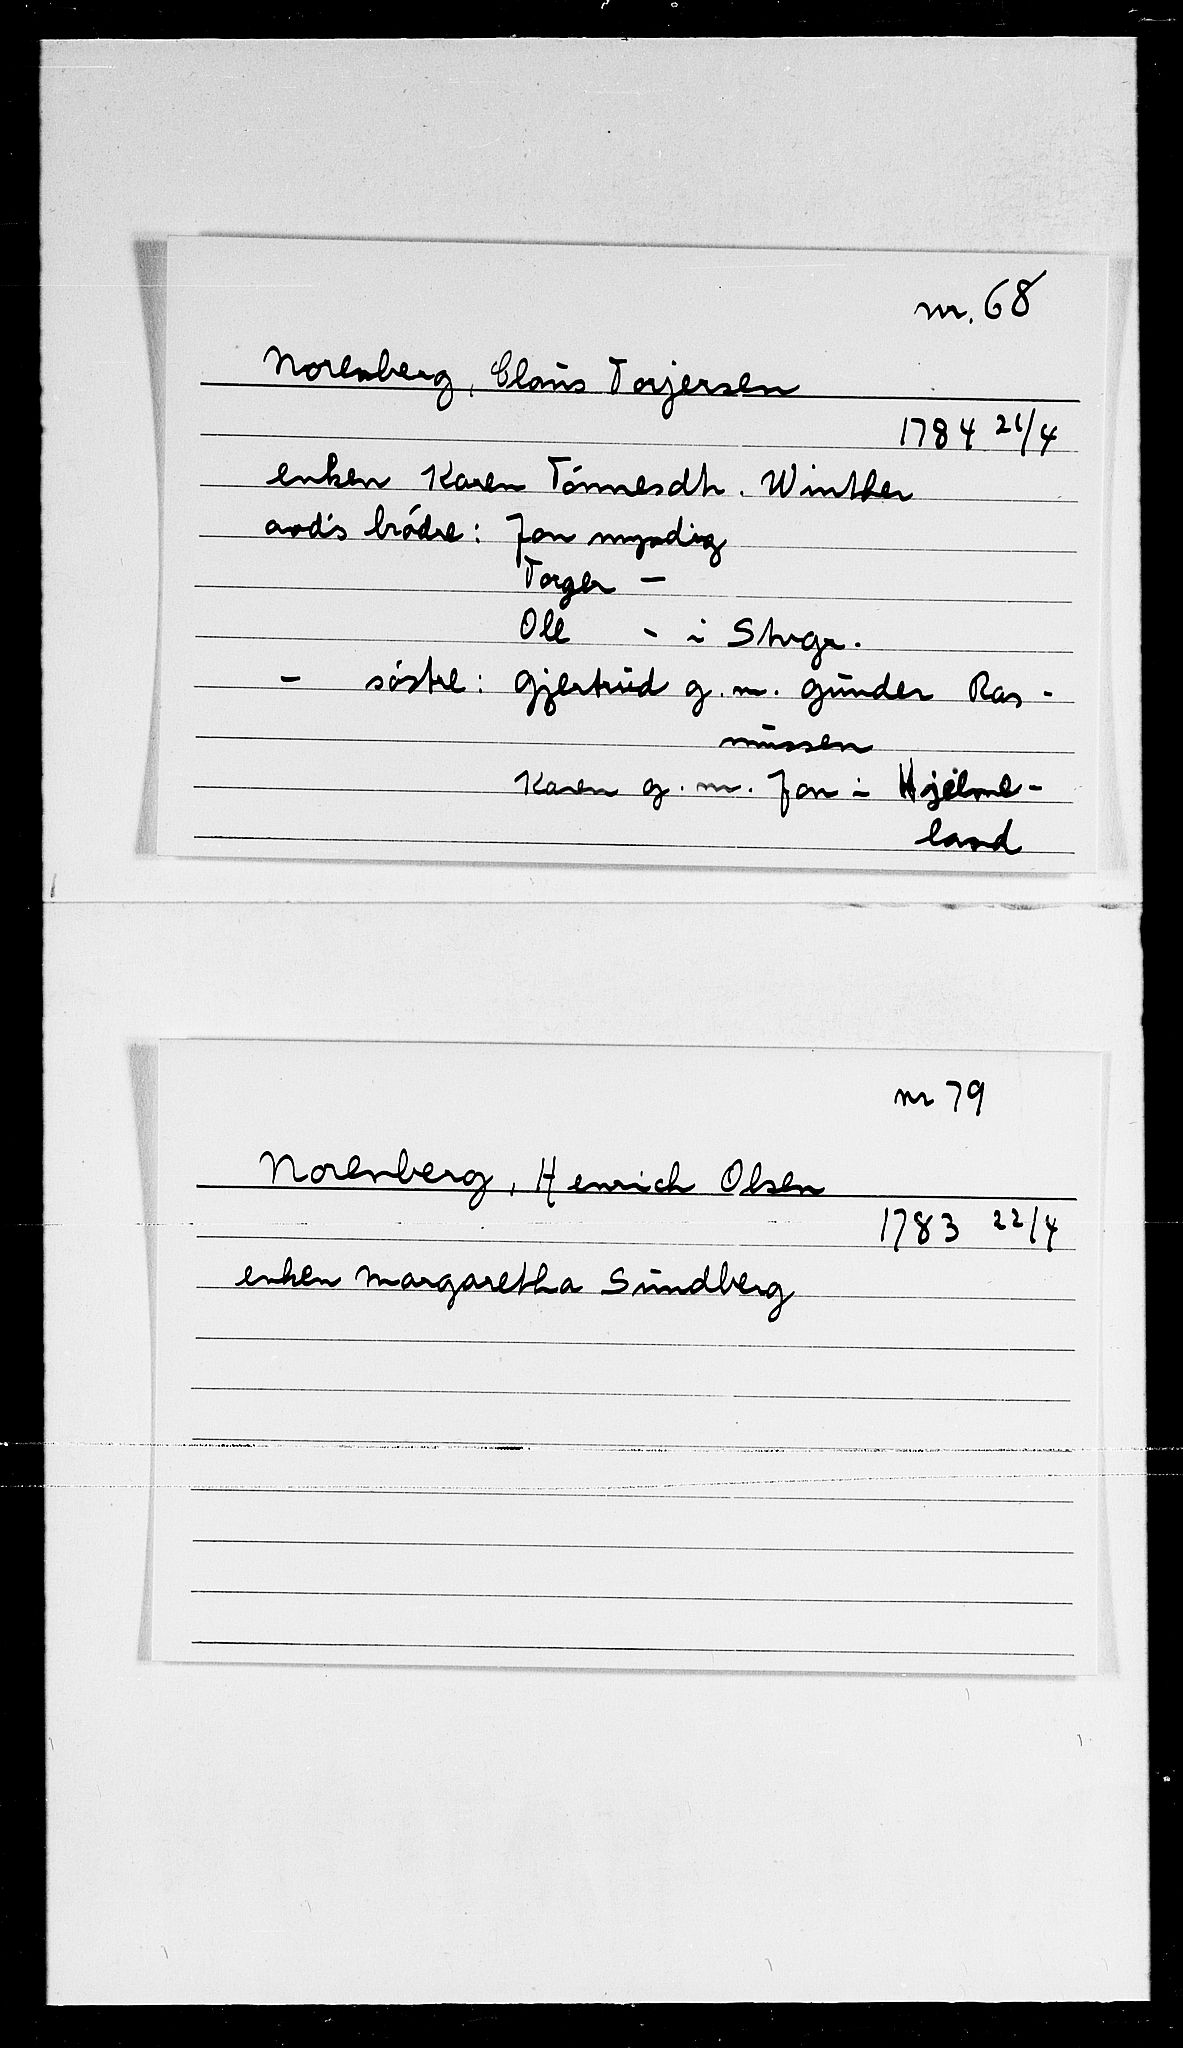 nr. 68
Norenberg, Claus Torjersen
1784 21/4
enken Karen Tønnesdtr. Winther
avd's brødre: Jon myndig
Torger -
Ole - i Stvgr.
- søstre: Gjertrud g. m. Gunder Ras-
mussen
Karen g. m. Jon i Hjelme-
land
nr 79
Norenberg, Henrich Olsen
1783 22/4
enken Margaretha Sundberg